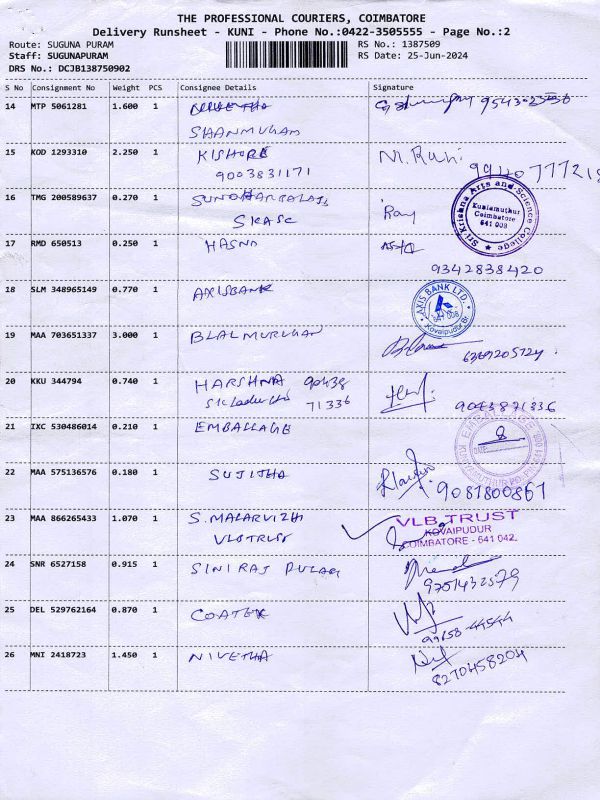 THE PROFESSIONAL COURIERS, COIMBATORE
Delivery Runsheet - KUNI - Phone No.:0422-3505555 - Page No.:2
Route: SUGUNA PURAM
RS No.: 1387509
Staff: SUGUNAPURAM
RS Date: 25-Jun-2024
DRS No.: DCJB138750902
S No Consignment No Weight PCS Consignee Details Signature
14 MTP 5061281 1.600 1
SHANMUGAM
15 KOD 1293310 2.250 1 KISHORE M. Rani
9003831171
16 TMG 200589637 0.270 1 Roy
SKASC
Sri Krishna Arts and Science College
Kuniamuthur
Coimbatore
641 008
17 RMD 650513 0.250 1 HASNA
9342838420
18 SLM 348965149 0.770 1 AXISBANK
AXIS BANK LTD.
Kovaipudur Br.
19 MAA 703651337 3.000 1 BLALMURUGAN
20 KKU 344794 0.740 1 HARSHNA 90438
71336 9043871336
21 IXC 530486014 0.210 1 EMBALLAGE
22 MAA 575136576 0.180 1 SUJITHA
9081800861
23 MAA 866265433 1.070 1 S. MALARVIZHI
VLB TRUST
VLB TRUST
KOVAIPUDUR
COIMBATORE - 641 042.
24 SNR 6527158 0.915 1 SINIRAJ
9751432579
25 DEL 529762164 0.870 1 COATEX
26 MNI 2418723 1.450 1 NIVETHA
8270458204